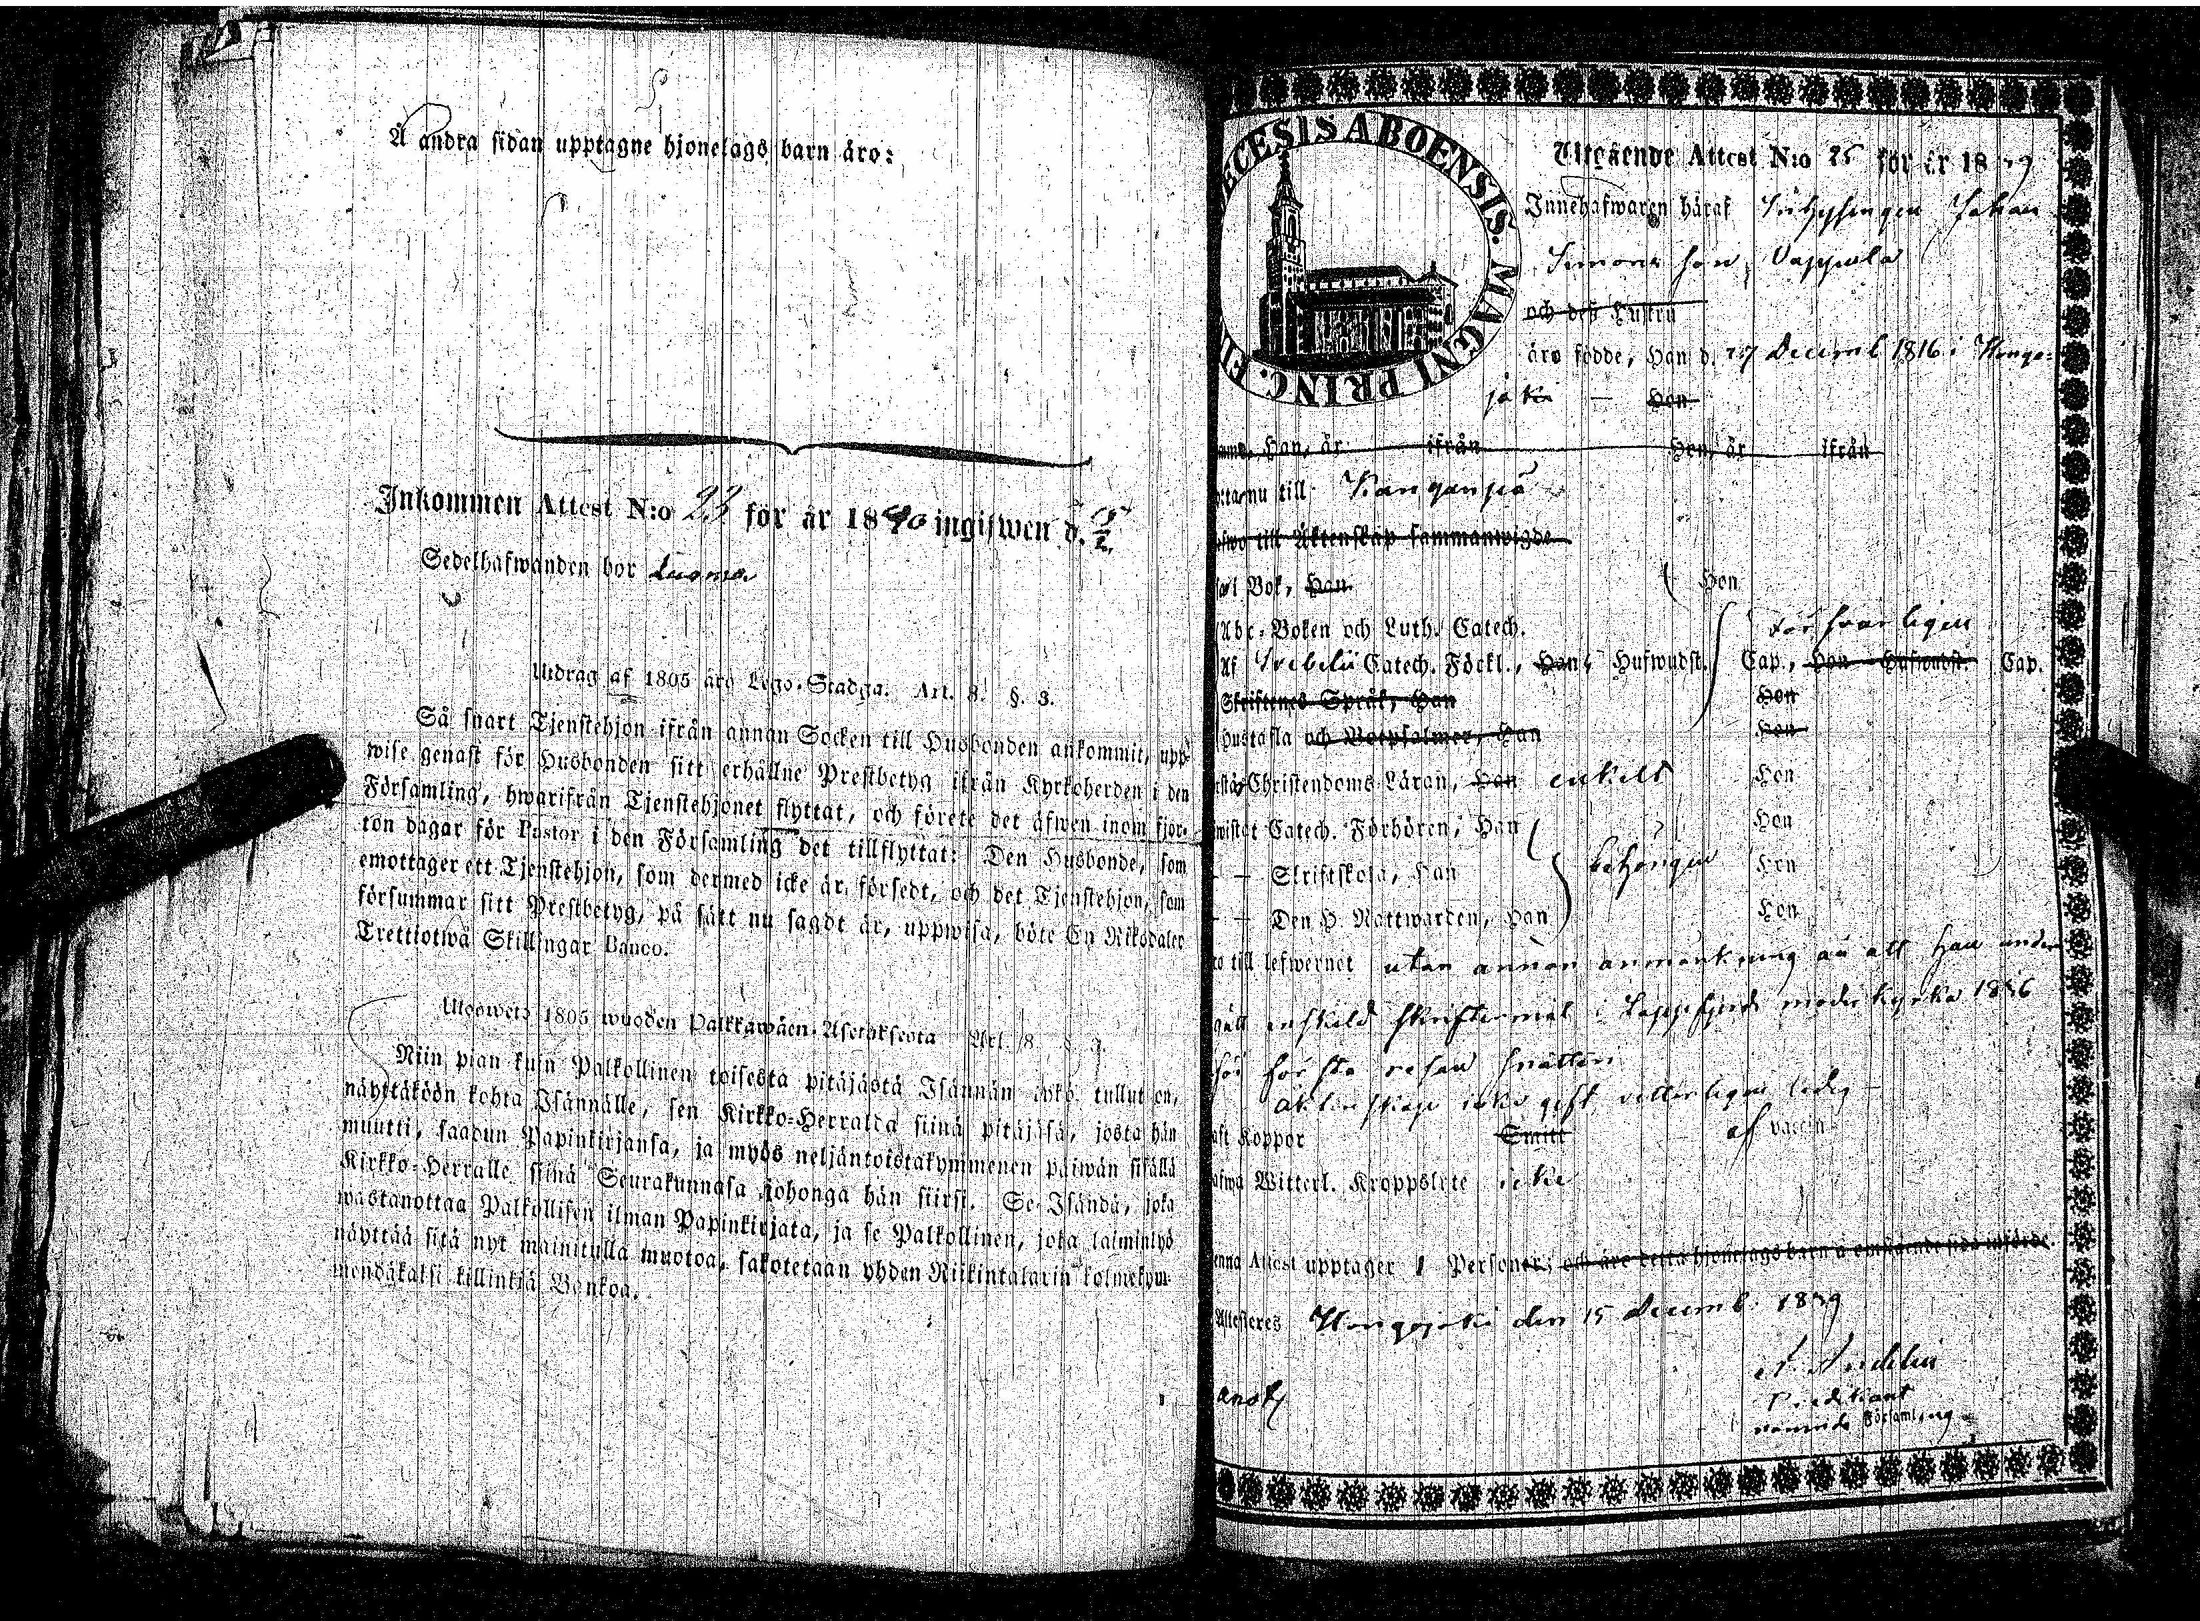 Å andra sidan upptagne hjonelags barn äro:
Inkommen Attest N:o 23 för år 1840 ingifwen d.
Sedelhafwanden bor Luoma
Utdrag af 1805 års Lego-Stadga. Art. 8. §. 3.
Så snart Tjenstehjon ifrån annan Socken till Husbonden ankommit, upp-
wise genast för Husbonden sitt erhållne Prestbetyg ifrån Kyrkoherden i den
Församling, hwarifrån Tjenstehjonet flyttat, och förete det äfwen inom fjor-
ton dagar för Pastor i den Församling det tillflyttat: Den Husbonde, som
emottager ett Tjenstehjon, som dermed icke är försedt, och det Tjenstehjon, som
försummar sitt Prestbetyg, på sätt nu sagdt är, uppwisa, böte En Riksdaler
Trettiotwå Skillingar Banco.
Ulosweto 1805 wuoden Palkkawäen-Asetuksesta Art. 8. §. 3.
Niin pian kuin Palkollinen toisesta pitäjästä Isännän tykö tullut on,
näyttäköön kohta Isännälle, sen Kirkko-Herralda siinä pitäjäsä, josta hän
muutti, saadun Papinkirjansa, ja myös neljäntoistakymmenen päiwän sisällä
Kirkko-Herralle siinä Seurakunnasa johonga hän siirsi. Se Isändä, joka
wastanottaa Palkollisen ilman Papinkirjata, ja se Palkollinen, joka laiminlyö
näyttää sitä nyt mainitulla muotoa, sakotetaan yhden Riikintalarin kolmekym-
mendäkaksi killinkiä Bankoa.
ECESIS ABOENSIS. MAGNI PRINC. FI
Utgående Attest N:o 25 för år 1839
Innehafwaren häraf Johan
Simons son Vappula
och deß Hustru
äro födde, Han d. 27 Decemb 1816 i Honga-
joki — Hon
Han, år ifrån Hon, år ifrån
nu till Kanganpä
till Äktenskap sammanwigde
i Bok, Han Hon
Abc-Boken och Luth. Catech. försvarligen
Af Svebelii Catech. Förkl., Han, Hufwudst. Cap., Hon Hufwudst. Cap.
Skriftenes Språk, Han Hon
Hustafla och Botpsalmer, Han Hon
Christendoms Läran, Han enkelt Hon
Catech. Förhören, Han Hon
— — Skriftskola, Han behörigen Hon
— — Den H. Nattwarden, Han Hon
till lefwernet utan annan anmärkning än att han under
gått enskild skriftermål i Lappfjerds moderkyrka 1836
för första resan
Äktenskap icke gift, vetterligen ledig —
Koppor Smitt af vaccin
Witterl. Kroppslyte icke
enna Attest upptager 1 Personer; och äro detta hjonelags barn å omstående sida införde.
Attesteras Hongojoki den 15 Decemb. 1839
Predikant
Församling